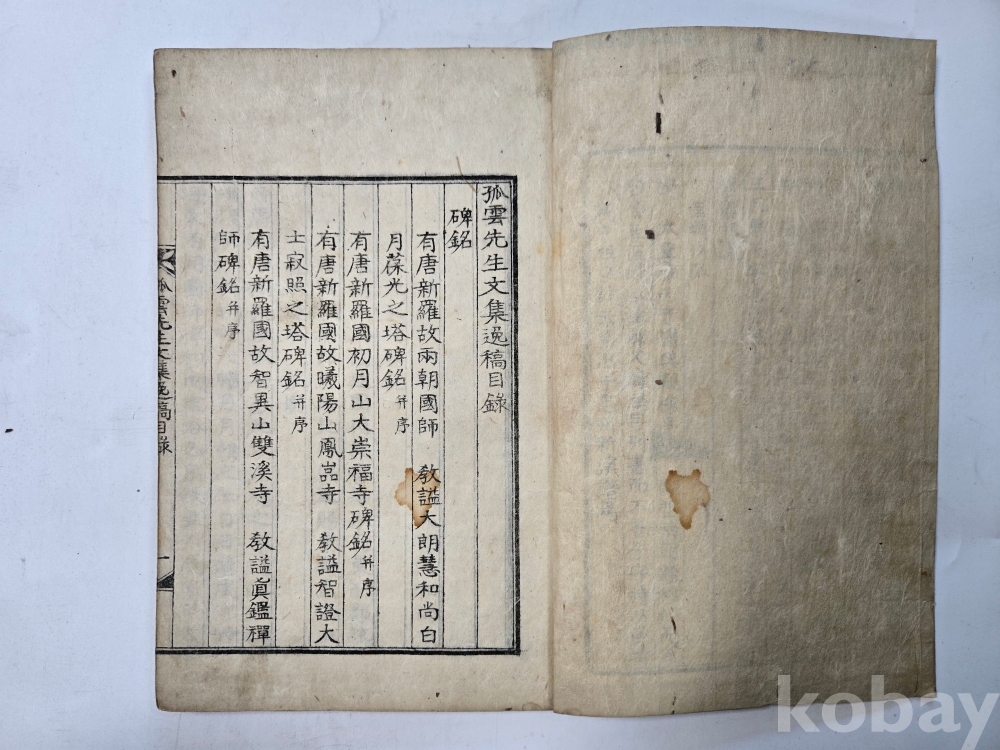 孤雲先生文集逸稿目錄
碑銘
有唐新羅故兩朝國師 敎謚大朗慧和尚白
月葆光之塔碑銘 幷序
有唐新羅國初月山大崇福寺碑銘 幷序
有唐新羅國故曦陽山鳳巖寺 敎謚智證大
士寂照之塔碑銘 幷序
有唐新羅國故智異山雙溪寺 敎謚眞鑑禪
師碑銘 幷序
孤雲先生文集逸稿目錄 一
kobay